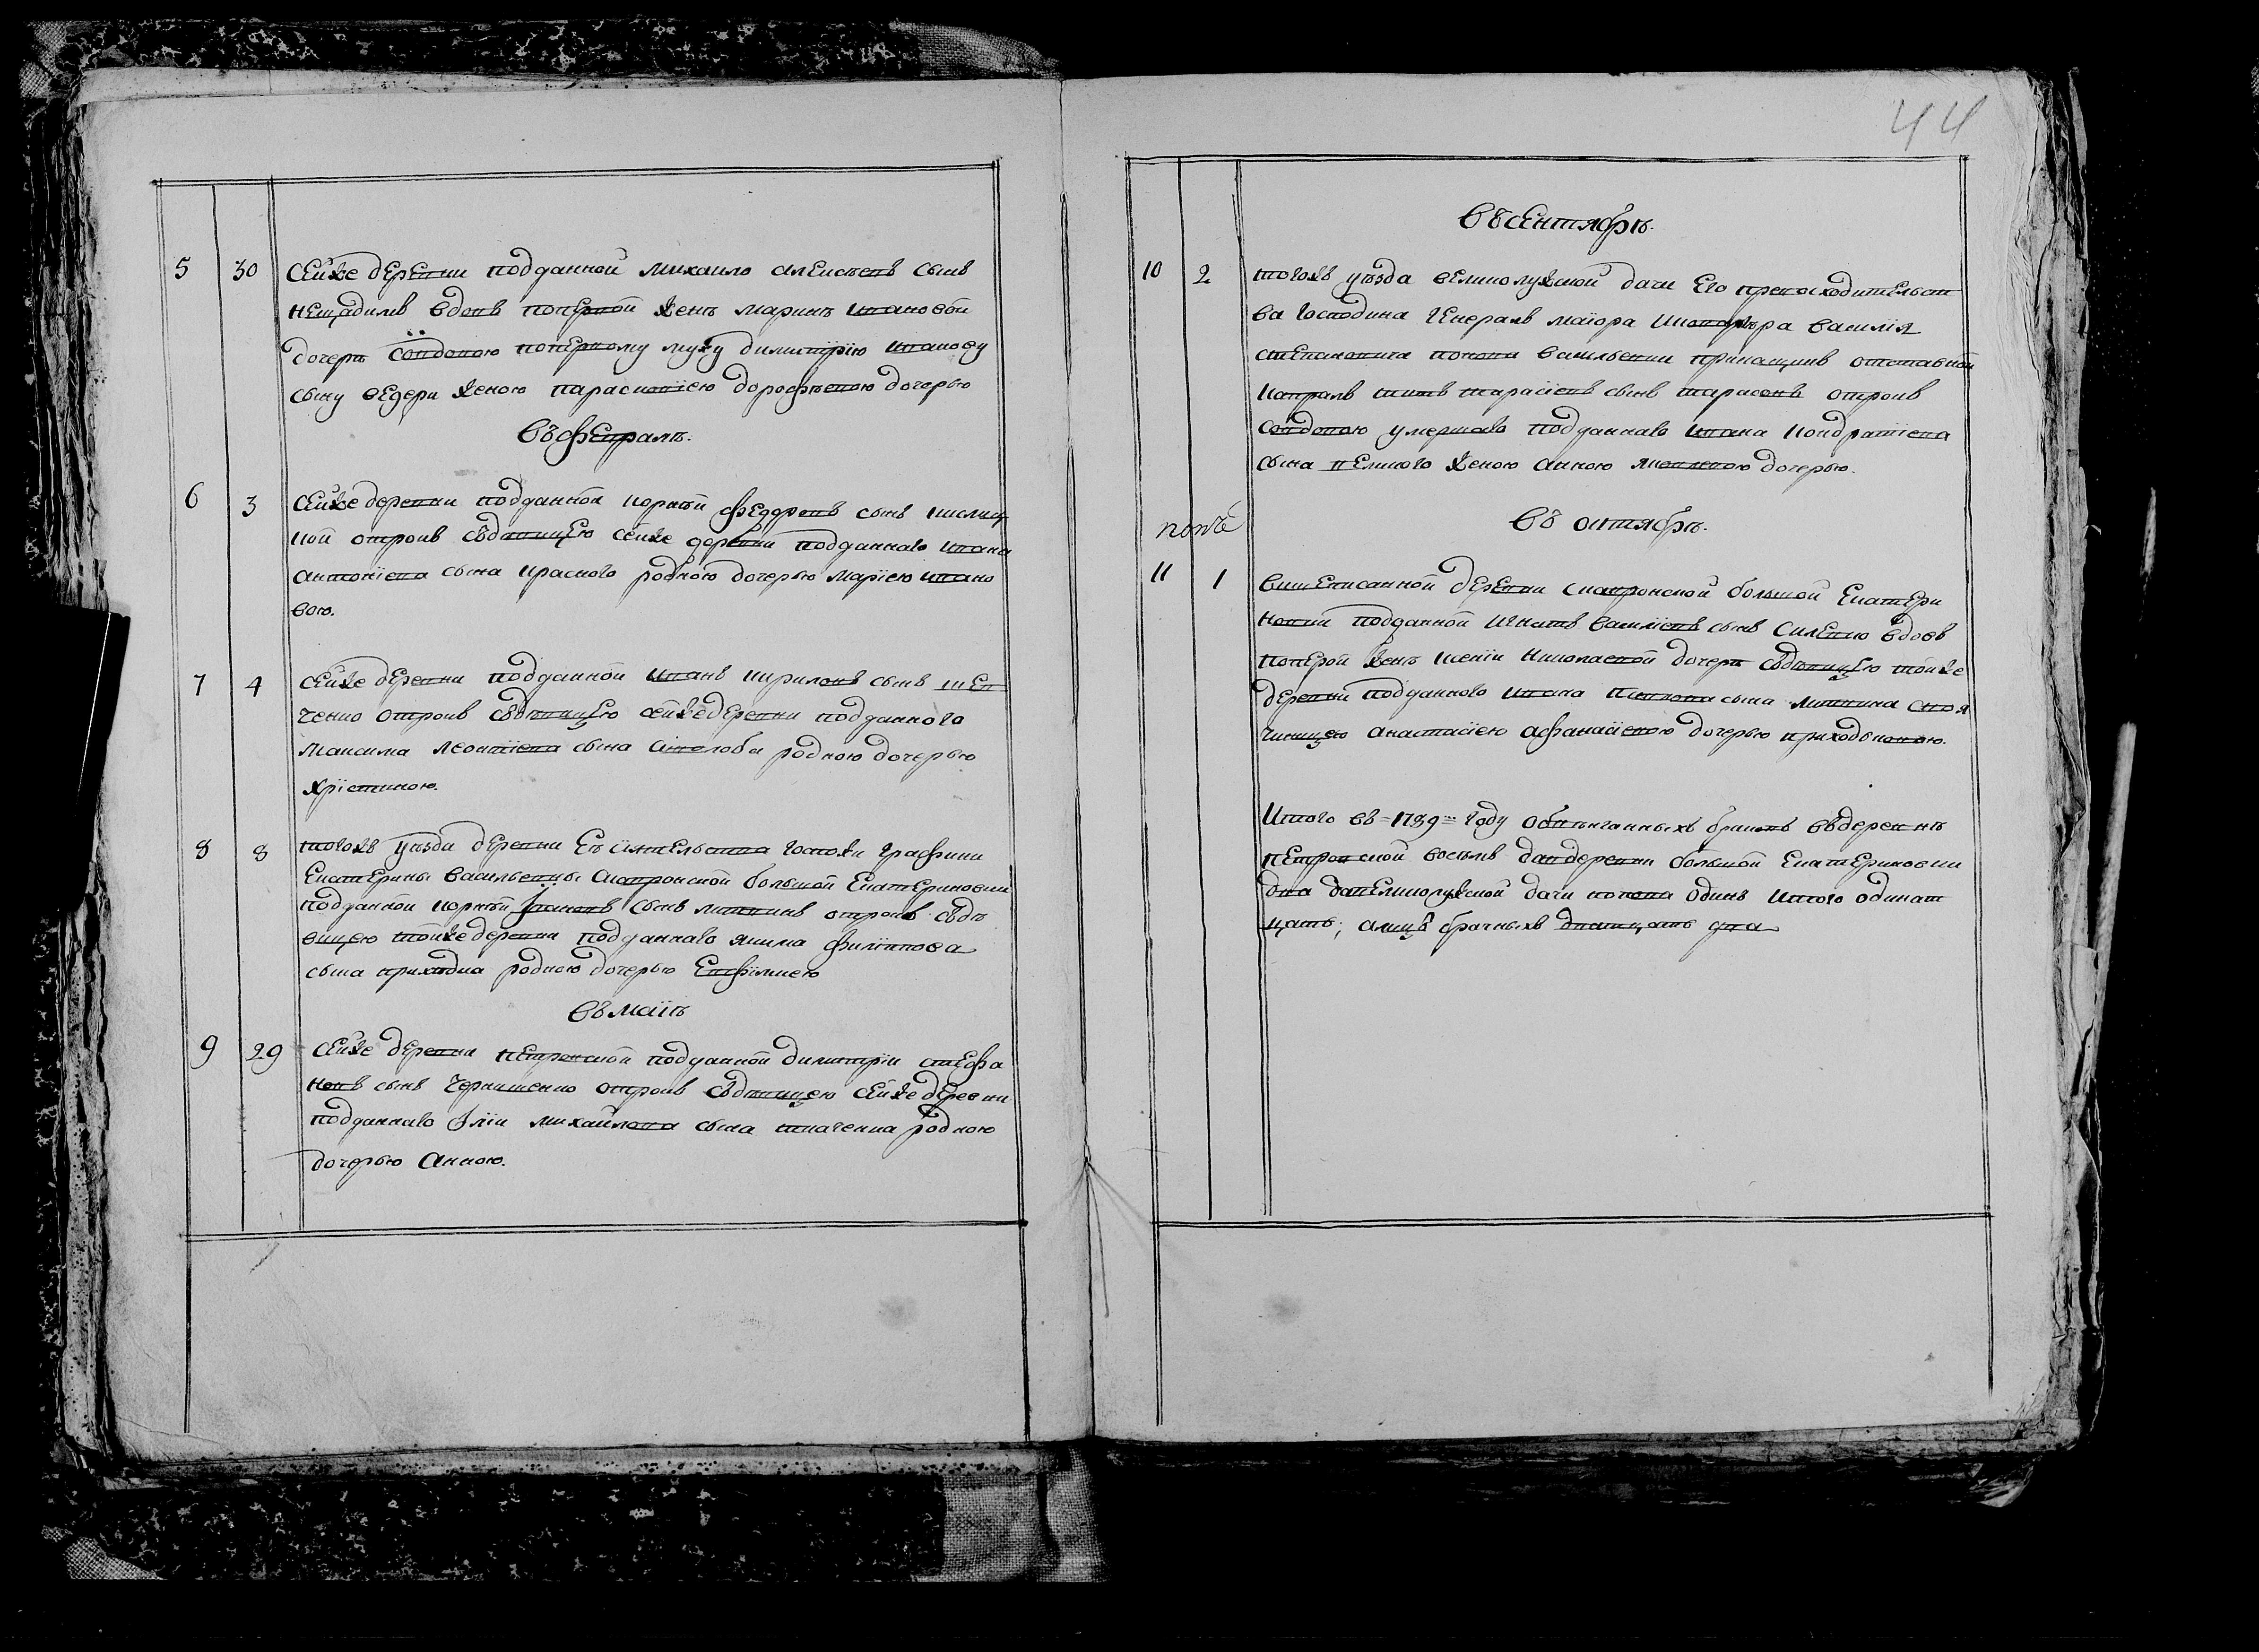 44
5 30 Сейже деревни подданной Михайло Алексѣевъ сынъ
Нещадимъ вдовъ поперьвой женѣ Маринѣ Ивановой
дочерѣ совдовою поперьвому мужу Димитрїю Иванову
сыну женою Параскевїею Дорофѣевою дочерью
Въ Февралѣ.
6 3 Сейже деревни подданной Корнѣй Федоровъ сынъ
кой отрокъ съдѣвицею сейже деревни подданнаго Ивана
Антонїева сына Красного родною дочерью Марїею Ивано
вою.
7 4 Сейже деревни подданной Иванъ Кириловъ сынъ Шев
ченко отрокъ съдѣвицею сейже деревни подданного
Максима Леонтїева сына родною дочерью
Хрїстиною.
8 8 тогожъ уѣзда деревни Еѣ Сїятельства госпожи графини
Екатерины Васильевны Скавронской большой Екатериновки
подданной Корнѣй сынъ Литвинъ отрокъ съдѣ
вицею тойже деревни подданнаго Якима Филїппова
сына Приходка родною дочерью Евфимиею
Въ Маїѣ
9 29 Сейже деревни Петровской подданной Димитрїй Стефа
новъ сынъ Чернишенко отрокъ съдѣвицею сейже деревни
подданнаго Їлїи Михайлова сына Ткаченка родною
дочерью Анною.
Въ Сентябрѣ.
10 2 тогожъ уѣзда Великолужской дачи Его превосходительст
ва Господина Генералъ Маїора Василїя
Степановича Попова Васильевки отставной
капралъ Титъ Тарасїевъ сынъ Тарасовъ отрокъ
совдовою умершаго подданнаго Ивана Кондратїева
сына Великого женою Анною Яковлевою дочерью.
Въ Октябрѣ.
11 1 вишеписанной деревни Скавронской большой Екатери
новки подданной Игнатъ Василїевъ сынъ Силенко вдовъ
поперьвой женѣ Ксенїи Николаевой дочерѣ съдѣвицею тойже
деревни подданного Ивана Павлова сына Литвина своя
чиницею Анастасїею Афанасїевою дочерью Приходковою.
Итого въ 1789 году обвѣнчанныхъ браковъ въ деревнѣ
Петровской восемь да в деревни большой Екатериновки
два да Великолужской дачи Попова одинъ Итого одинат
цать; а лицъ брачныхъ дватцать два